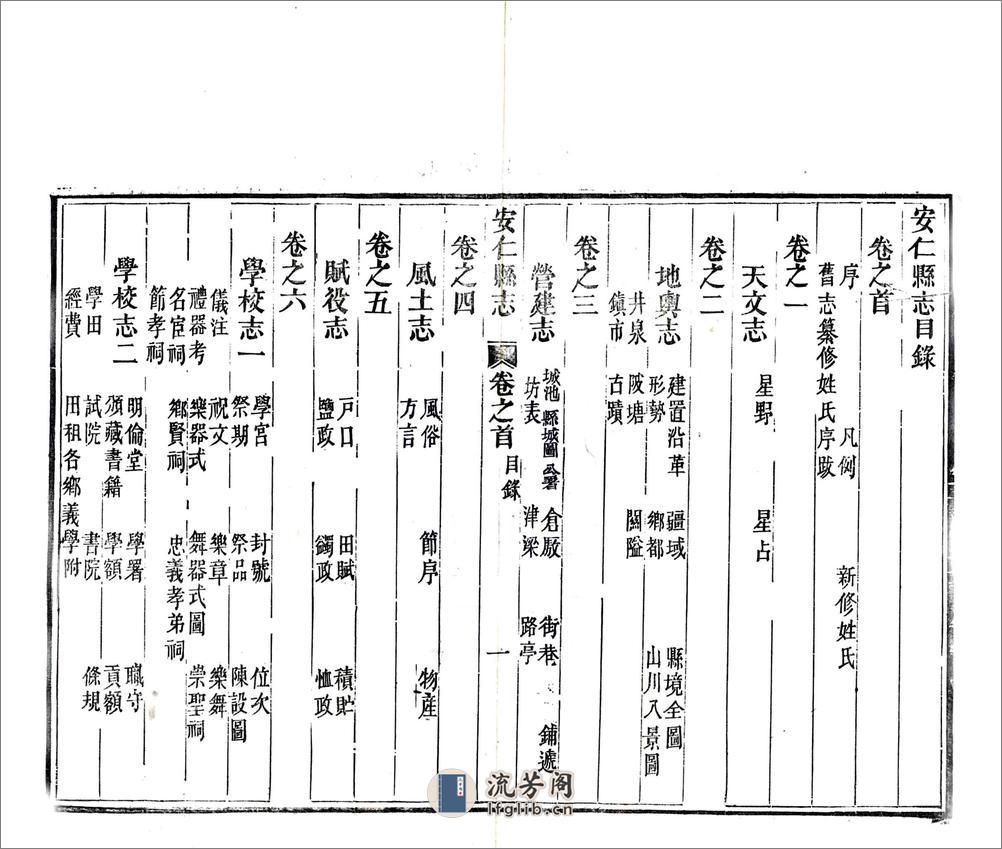 安仁縣志目錄
卷之首
序 凡例 新修姓氏
舊志纂修姓氏序跋
卷之一
天文志 星野 星占
卷之二
地輿志 建置沿革 疆域 縣境全圖
形勢 鄉都 山川八景圖
井泉 陂塘 關隘
鎮市 古蹟
卷之三
營建志 城池 縣城圖 公署 倉厫 街巷 鋪遞
坊表 津梁 路亭
安仁縣志 卷之首 目錄 一
卷之四
風土志 風俗 節序 物産
方言
卷之五
賦役志 戸口 田賦 積貯
鹽政 蠲政 恤政
卷之六
學校志一 學宮 封號 位次
祭期 祭品 陳設圖
儀注 祝文 樂章 樂舞
禮器考 樂器式 舞器式圖 崇聖祠
名宦祠 鄉賢祠 忠義孝弟祠
節孝祠
學校志二 明倫堂 學署 職守
頒藏書籍 學額 貢額
學田 試院 書院 條規
經費 田租各鄉義學附
流芳阁
lfglib.cn